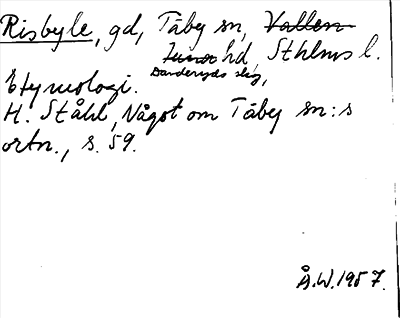 Risbyle, gd, Täby sn, Vallen-
tuna hd, Sthlms l.
Danderyds slg,
Etymologi.
H. Ståhl, Något om Täby sn:s
ortn., s. 59.
Å.W. 1957.